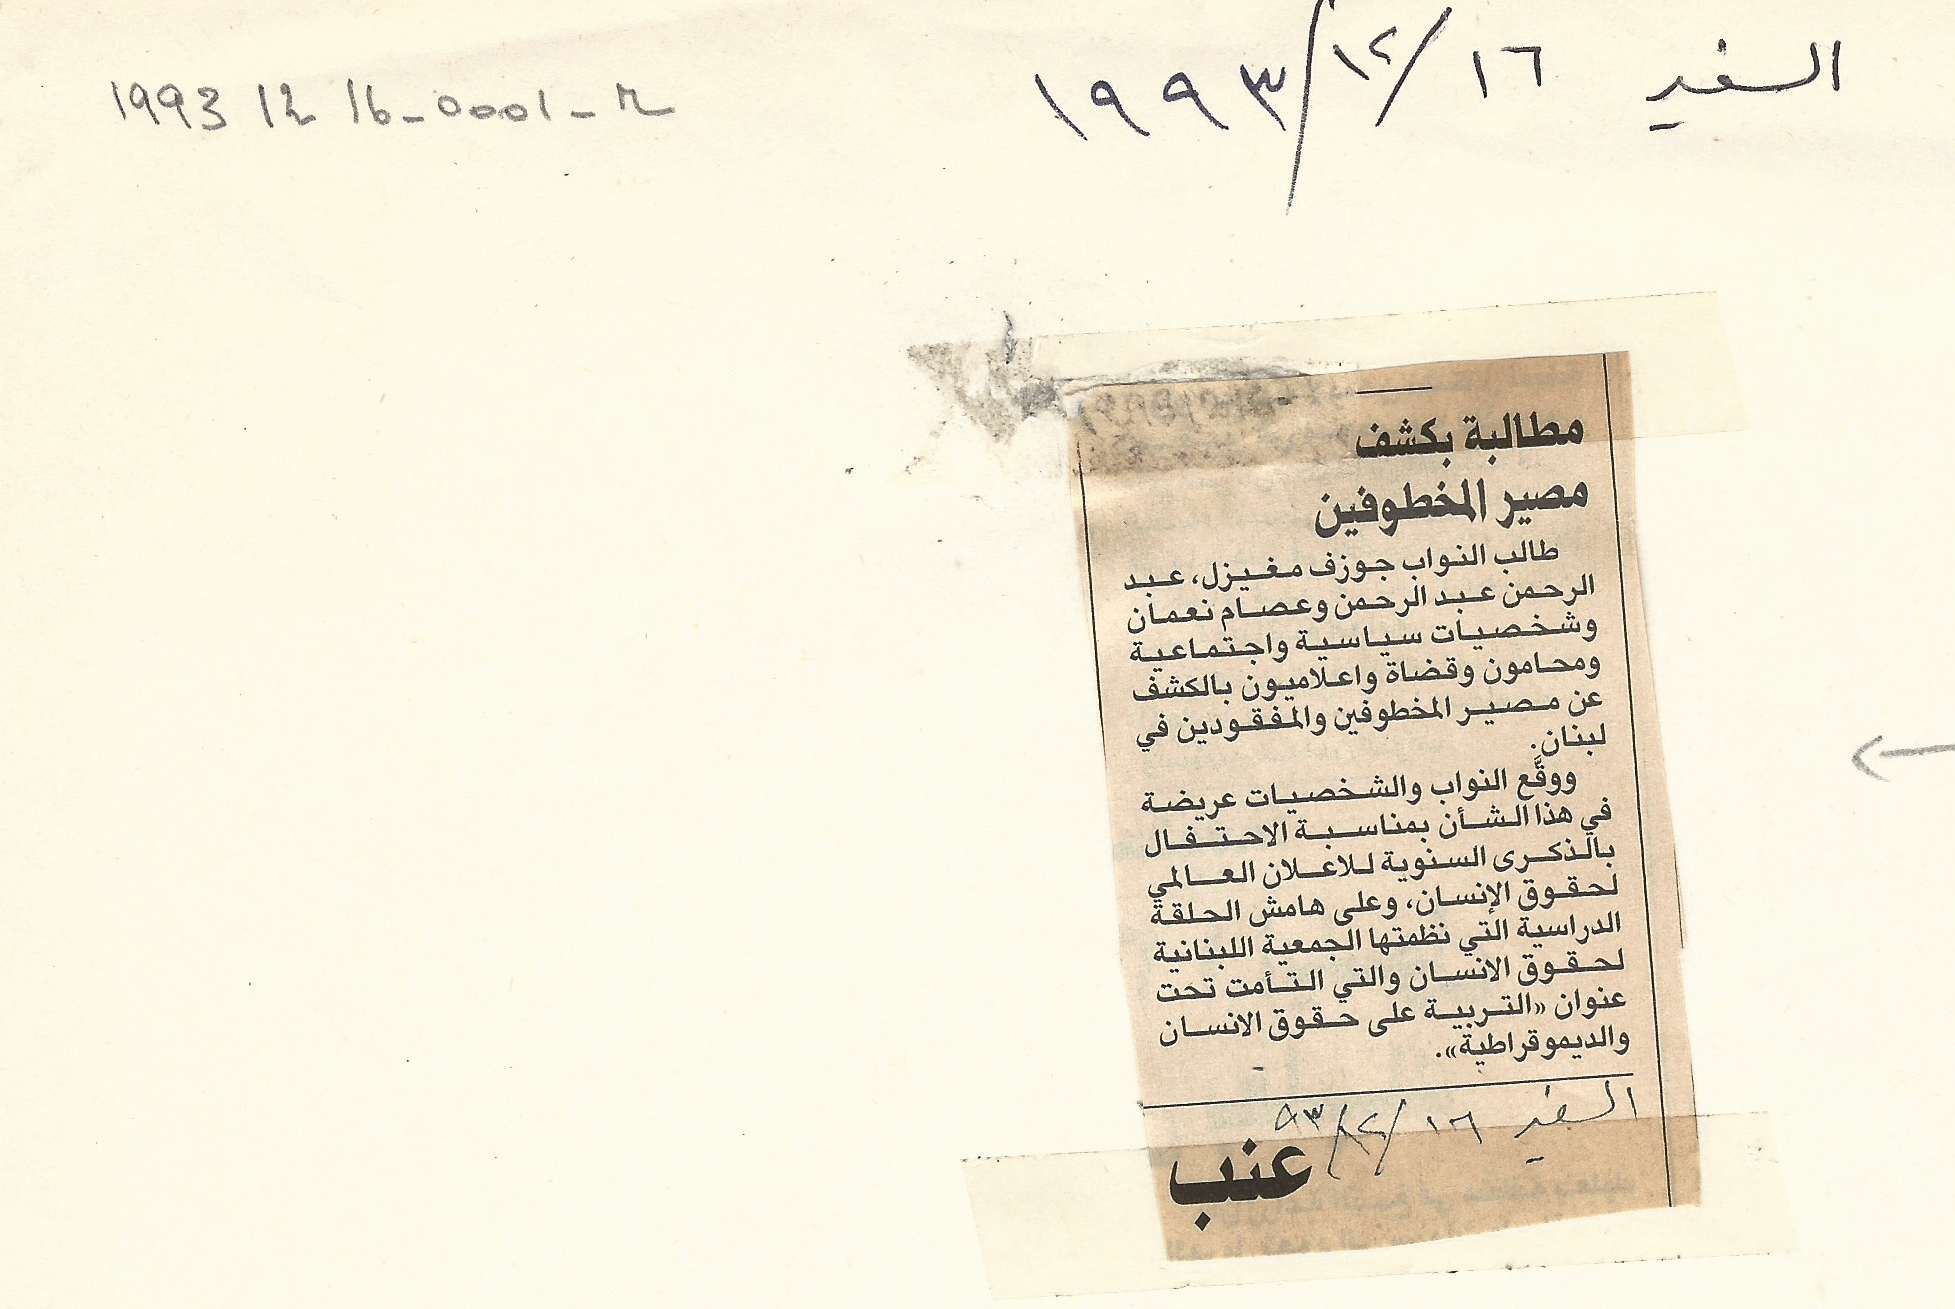 السفير ١٦/١٢/١٩٩٣
1993 12 16-0001-r
مطالبة بكشف
مصير المخطوفين
طالب النواب جوزف مغيزل، عبد
الرحمن عبد الرحمن وعصام نعمان
وشخصيات سياسية واجتماعية
ومحامون وقضاة واعلاميون بالكشف
عن مصير المخطوفين والمفقودين في
لبنان.
ووقَّع النواب والشخصيات عريضة
في هذا الشأن بمناسبة الاحتفال
بالذكرى السنوية للاعلان العالمي
لحقوق الإنسان، وعلى هامش الحلقة
الدراسية التي نظمتها الجمعية اللبنانية
لحقوق الانسان والتي التأمت تحت
عنوان «التربية على حقوق الانسان
والديموقراطية».
السفير ١٦/١٢/٩٣
عنب